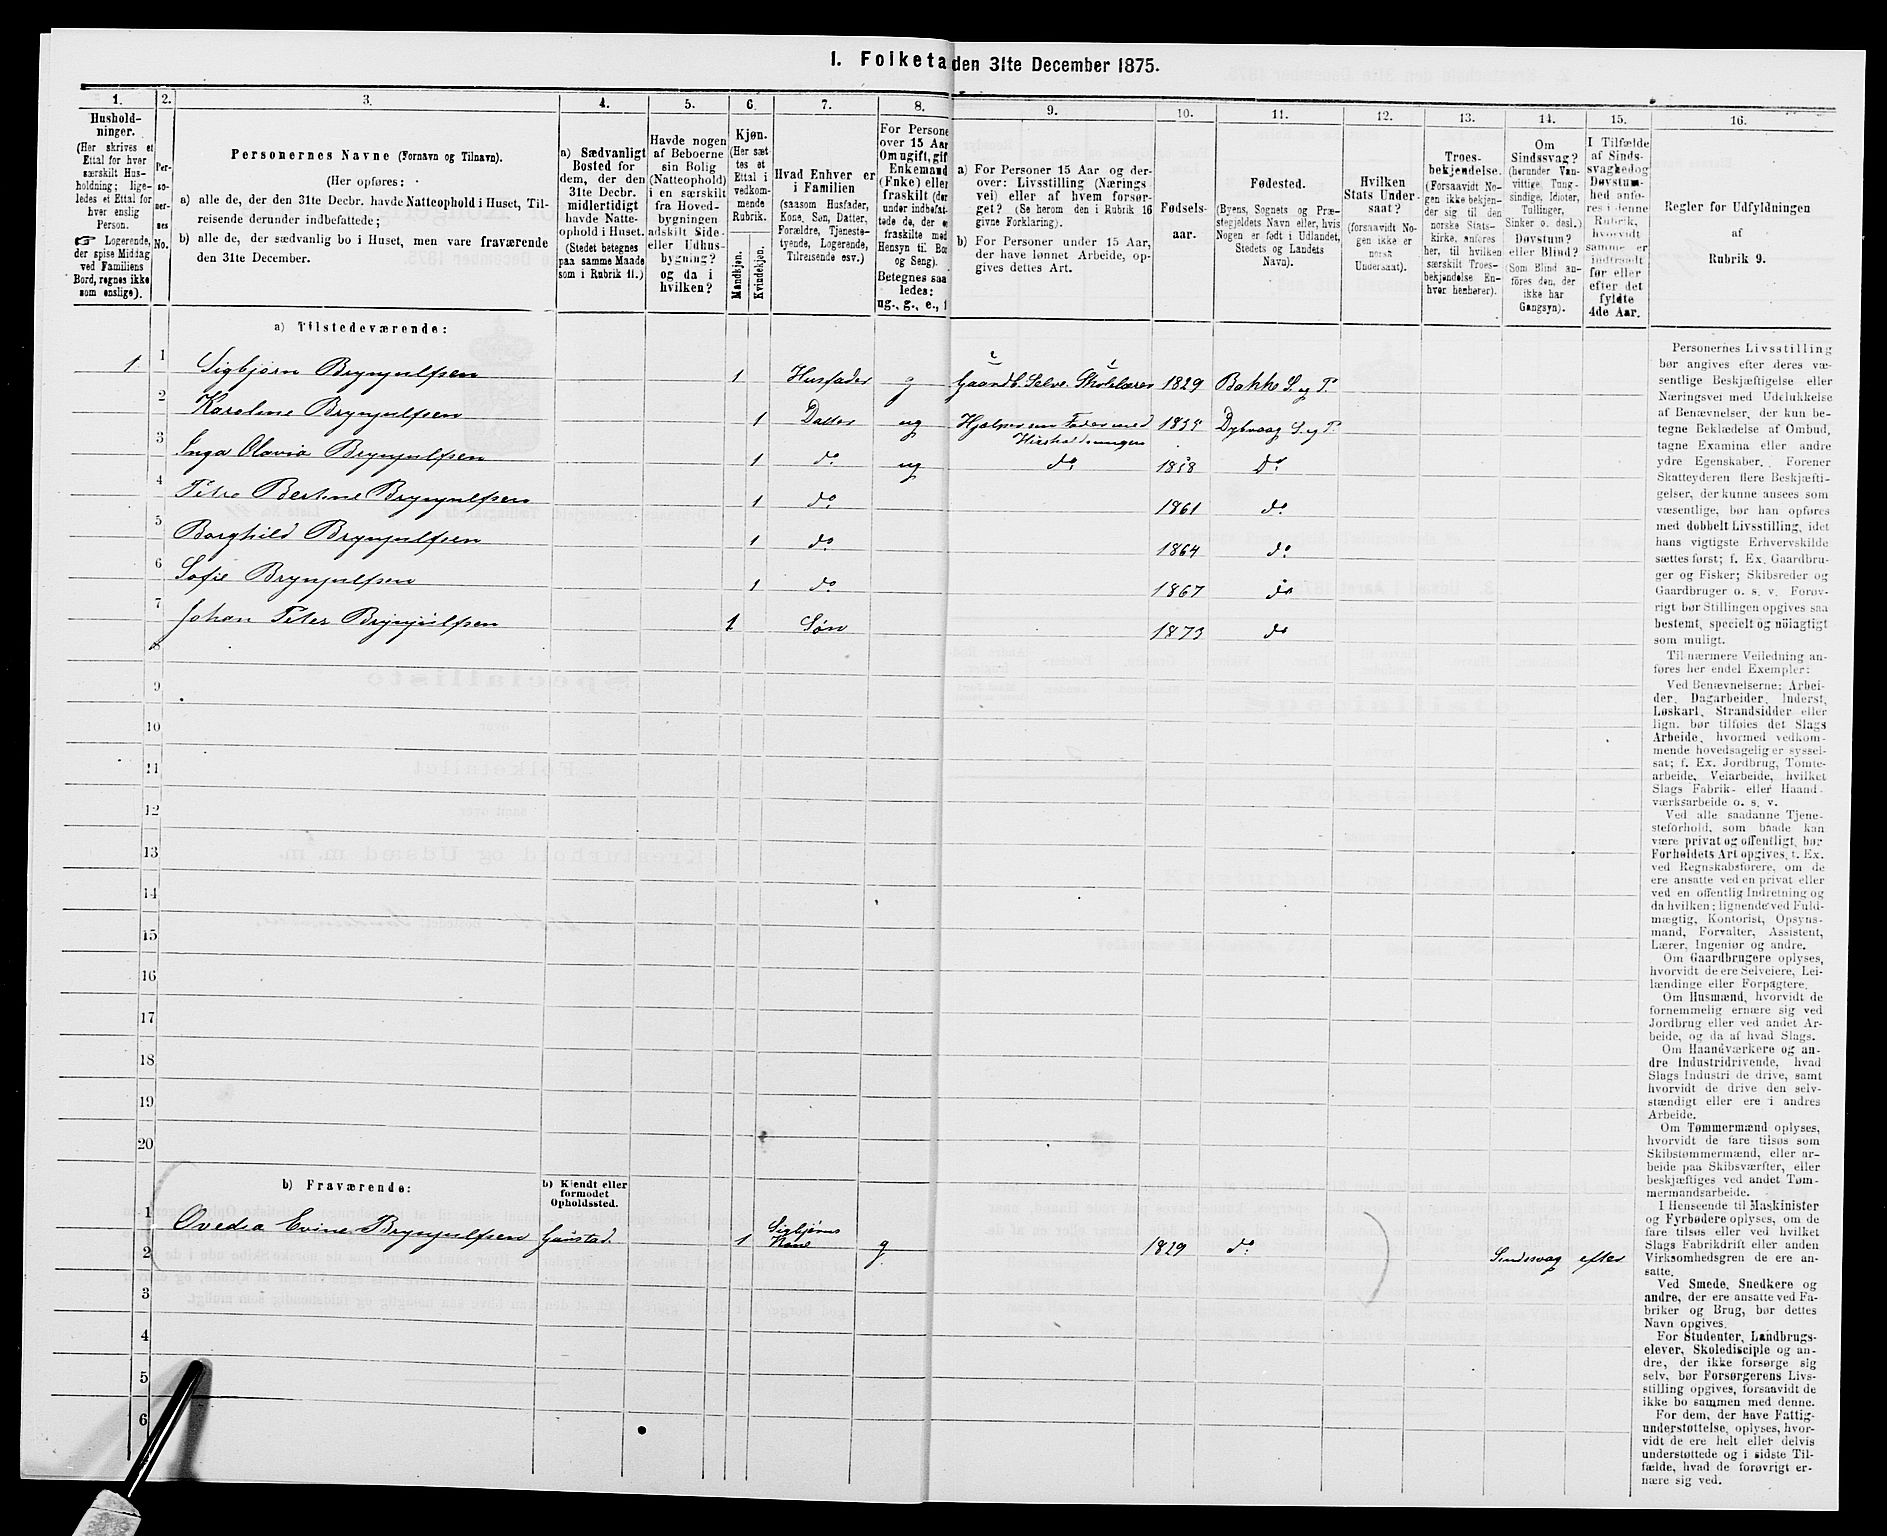 I. Folketa den 31te December 1875.
1. 2. 3. 4. 5. 6. 7. 8. 9. 10. 11. 12. 13. 14. 15. 16.
Hushold-
ninger.
(Her skrives et
Ettal for hver
særskilt Hus-
holdning; lige-
ledes et Ettal for
hver enslig
Person.
☞ Logerende,
der spise Middag
ved Familiens
Bord, regnes ikke
som enslige).
Per-
so-
ner-
nes
No.
Personernes Navne (Fornavn og Tilnavn).
(Her opføres:
a) alle de, der den 31te Decbr. havde Natteophold i Huset, Til-
reisende derunder indbefattede;
b) alle de, der sædvanlig bo i Huset, men vare fraværende
den 31te December.
a) Sædvanligt
Bosted for
dem, der den
31te Decbr.
midlertidigt
havde Natte-
ophold i Huset.
(Stedet betegnes
paa samme Maade
som i Rubrik 11.)
Havde nogen
af Beboerne
sin Bolig
(Natteophold)
i en særskilt
fra Hoved-
bygningen
adskilt Side-
eller Udhus-
bygning?
og da i
hvilken?
Kjøn.
(Her sæt-
tes et
Ettal i
vedkom-
mende
Rubrik.
Mandkjøn.
Kvindekjøn.
Hvad Enhver er
i Familien
(saasom Husfader,
Kone, Søn, Datter,
Forældre, Tjeneste-
tyende, Logerende,
Tilreisende osv.)
For Persone
over 15 Aar
Om ugift, gif
Enkemand
(Enke) elle
fraskilt (der
under indbefat-
tede de, der e
fraskilte med
Hensyn til Bo
og Seng).
Betegnes saa
ledes:
ug., g., e.,
a) For Personer 15 Aar og der-
over: Livsstilling (Nærings-
vei) eller af hvem forsør-
get? (Se herom den i Rubrik 16
givne Forklaring).
b) For Personer under 15 Aar,
der have lønnet Arbeide, op-
gives dettes Art.
Fødsels-
aar.
Fødested.
(Byens, Sognets og Præ-
stegjeldets Navn eller, hvis
Nogen er født i Udlandet,
Stedets og Landets
Navn).
Hvilken
Stats Under-
saat?
(forsaavidt No-
gen ikke er
norsk
Undersaat).
Troes-
bekjendelse.
(Forsaavidt No-
gen ikke bekjen-
der sig til den
norske Stats-
kirke, anføres
her, til hvilken
særskilt Troes-
bekjendelse En-
hver henhører).
Om
Sindssvag?
(herunder Van-
vittige, Tung-
sindige, Idioter,
Tullinger,
Sinker o. desl.)
Døvstum?
eller Blind?
(Som Blind an-
føres den, der
ikke har
Gangsyn).
I Tilfælde
af Sinds-
svaghed og
Døvstum-
hed anfø-
res i denne
Rubrik,
hvorvidt
samme er
indtraadt
før eller
efter det
fyldte
4de Aar.
Regler for Udfyldningen
af
Rubrik 9.
a) Tilstedeværende:
1 1 Sigbjørn Brynjulfsen 1 Husfader g Gaardb. Selv. Skolelærer 1829 Bakke S. og P.
2 Karoline Brynjulfsen 1 Datter ug Hjælper sin Fader med Husholdningen 1855 Dybvaag S. og P.
3 Inga Olavia Brynjulfsen 1 do ug do 1858 Do
4 Petra Bertine Brynjulfsen 1 do 1861 do
5 Borghild Brynjulfsen 1 do 1864 do
6 Sofie Brynjulfsen 1 do 1867 do
7 Johan Peter Brynjulfsen 1 Søn 1873 do
8
9
10
11
12
13
14
15
16
17
18
19
20
b) Fraværende:
b) Kjendt eller
formodet
Opholdssted.
1 Ovedia Evine Brynjulfsen Gaustad. 1 Sigbjørns Kone g. 1829 do Sindssvag efter
2
3
4
5
6
Personernes Livsstilling
bør angives efter deres væ-
sentlige Beskjæftigelse eller
Næringsvei med Udelukkelse
af Benævnelser, der kun be-
tegne Beklædelse af Ombud,
tagne Examina eller andre
ydre Egenskaber. Forener
Skatteyderen flere Beskjæfti-
gelser, der kunne ansees som
væsentlige, bør han opføres
med dobbelt Livsstilling, idet
hans vigtigste Erhvervskilde
sættes først; f. Ex. Gaardbru-
ger og Fisker; Skibsreder og
Gaardbruger o. s. v. Forøv-
rigt bør Stillingen opgives saa
bestemt, specielt og nöiagtigt
som muligt.
Til nærmere Veiledning an-
føres her endel Exempler:
Ved Benævnelserne: Arbei-
der, Dagarbeider, Inderst,
Løskarl, Strandsidder eller
lign. bør tilføies det Slags
Arbeide, hvormed vedkom-
mende hovedsagelig er syssel-
sat; f. Ex. Jordbrug, Tomte-
arbeide, Veiarbeide, hvilket
Slags Fabrik- eller Haand-
værksarbeide o. s. v.
Ved alle saadanne Tjene-
steforhold, som baade kan
være privat og offentligt, bør
Forholdets Art opgives, t. Ex.
ved Regnskabsførere, om de
ere ansatte ved en privat eller
ved en offentlig Indretning og
da hvilken; lignende ved Fuld-
mægtig, Kontorist, Opsyns-
mand, Forvalter, Assistent,
Lærer, Ingeniør og andre.
Om Gaardbrugere oplyses,
hvorvidt de ere Selveiere, Lei-
lændinge eller Forpagtere.
Om Husmænd, hvorvidt de
fornemmelig ernære sig ved
Jordbrug eller ved andet Ar-
beide, og da af hvad Slags.
Om Haandværkere og an-
dre Industridrivende, hvad
Slags Industri de drive, samt
hvorvidt de drive den selv-
stændigt eller ere i andres
Arbeide.
Om Tømmermænd oplyses,
hvorvidt de fare tilsøs som
Skibstømmermænd, eller ar-
beide paa Skibsværfter, eller
beskjæftiges ved andet Tøm-
mermandsarbeide.
I Henseende til Maskinister
og Fyrbødere oplyses, om de
fare tilsøs eller ved hvilket
Slags Fabrikdrift eller anden
Virksomhedsgren de ere an-
satte.
Ved Smede, Snedkere og
andre, der ere ansatte ved Fa-
briker og Brug, bør dettes
Navn opgives.
For Studenter, Landbrugs-
elever, Skoledisciple og an-
dre, der ikke forsørge sig
selv, bør Forsørgerens Livs-
stilling opgives, forsaavidt de
ikke bo sammen med denne.
For dem, der have Fattig-
understøttelse, oplyses, hvor-
vidt de ere helt eller delvis
understøttede og i sidste Til-
fælde, hvad de forøvrigt er-
nære sig ved.